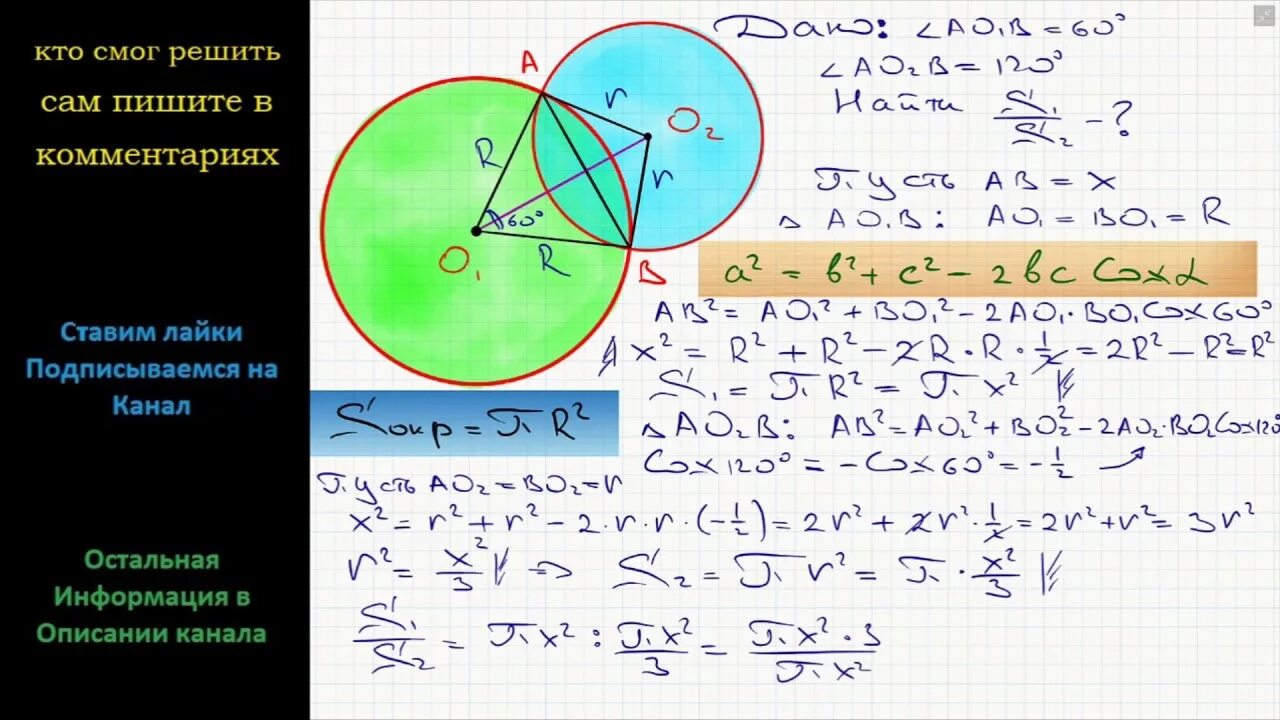 кто смог решить
сам пишите в
комментариях
Ставим лайки
Подписываемся на
Канал
Остальная
Информация в
Описании канала
A
r
O₂
R
r
60°
O₁
R
B
Sокр = πR²
Дано: ∠AO₁B = 60°
∠AO₂B = 120°
Найти S₁/S₂ - ?
Пусть AB = x
△ AO₁B: AO₁ = BO₁ = R
a² = b² + c² - 2bc Cos α
AB² = AO₁² + BO₁² - 2AO₁·BO₁Cos60°
x² = R² + R² - 2R·R·1/2 = 2R² - R² = R²
S₁ = πR² = πx²
△ AO₂B: AB² = AO₂² + BO₂² - 2AO₂·BO₂Cos120°
Cos120° = -Cos60° = -1/2
Пусть AO₂ = BO₂ = r
x² = r² + r² - 2·r·r·(-1/2) = 2r² + 2r²·1/2 = 2r² + r² = 3r²
r² = x²/3 => S₂ = πr² = π·x²/3
S₁/S₂ = πx² : πx²/3 = πx²·3/πx²